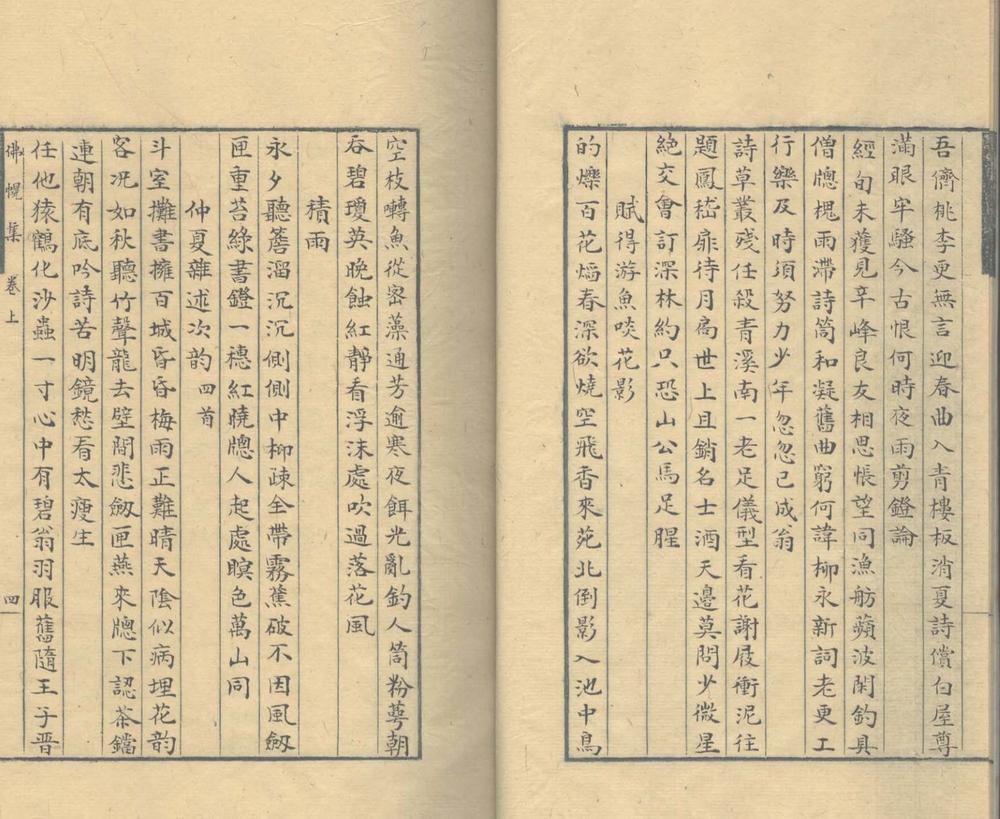 吾儕桃李更無言迎春曲入青樓板消夏詩償白屋尊
滿眼牢騷今古恨何時夜雨剪鐙論
經旬未獲見辛峰良友相思悵望同漁舫蘋波閑釣具
僧牕槐雨滯詩筒和凝舊曲窮何諱柳永新詞老更工
行樂及時須努力少年忽忽已成翁
詩草叢殘任殺青溪南一老足儀型看花謝屐衝泥往
題鳳嵇扉待月扃世上且銷名士酒天邊莫問少微星
絶交會訂深林約只恐山公馬足腥
賦得游魚啖花影
的爍百花燄春深欲燒空飛香來苑北倒影入池中鳥
空枝囀魚從密藻通芳逾寒夜餌光亂釣人筒粉萼朝
吞碧瓊英晩蝕紅靜看浮沫處吹過落花風
積雨
永夕聽簷溜沉沉側側中柳疎全帶霧蕉破不因風劒
匣重苔綠書鐙一穗紅曉牕人起處暝色萬山同
仲夏雜述次韵四首
斗室攤書擁百城昏昏梅雨正難晴天陰似病埋花韵
客況如秋聽竹聲龍去壁間悲劒匣燕來牕下認茶鐺
連朝有底吟詩苦明鏡愁看太瘦生
任他猿鶴化沙蟲一寸心中有碧翁羽服舊隨王子晋
佛幌集 卷上 四